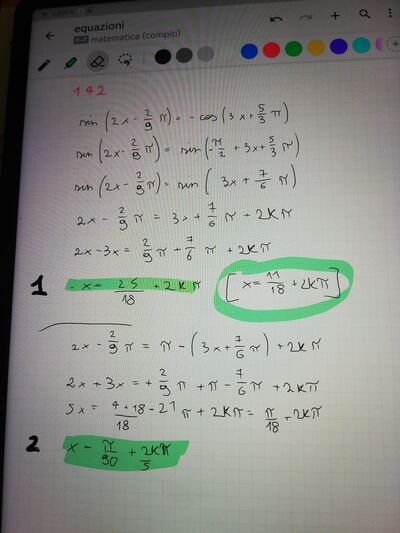 equazioni
matematica (compiti)
142
sin (2x - 2/9 π) = - cos (3x + 5/3 π)
sin (2x - 2/9 π) = sin (-π/2 + 3x + 5/3 π)
sin (2x - 2/9 π) = sin ( 3x + 7/6 π)
2x - 2/9 π = 3x + 7/6 π + 2kπ
2x - 3x = 2/9 π + 7/6 π + 2kπ
1 - x - 25/18 + 2kπ [x = 11/18 + 2kπ]
2x - 2/9 π = π - (3x + 7/6 π) + 2kπ
2x + 3x = + 2/9 π + π - 7/6 π + 2kπ
5x = 4 + 18 - 21/18 π + 2kπ = π/18 + 2kπ
2 x - π/90 + 2kπ/5